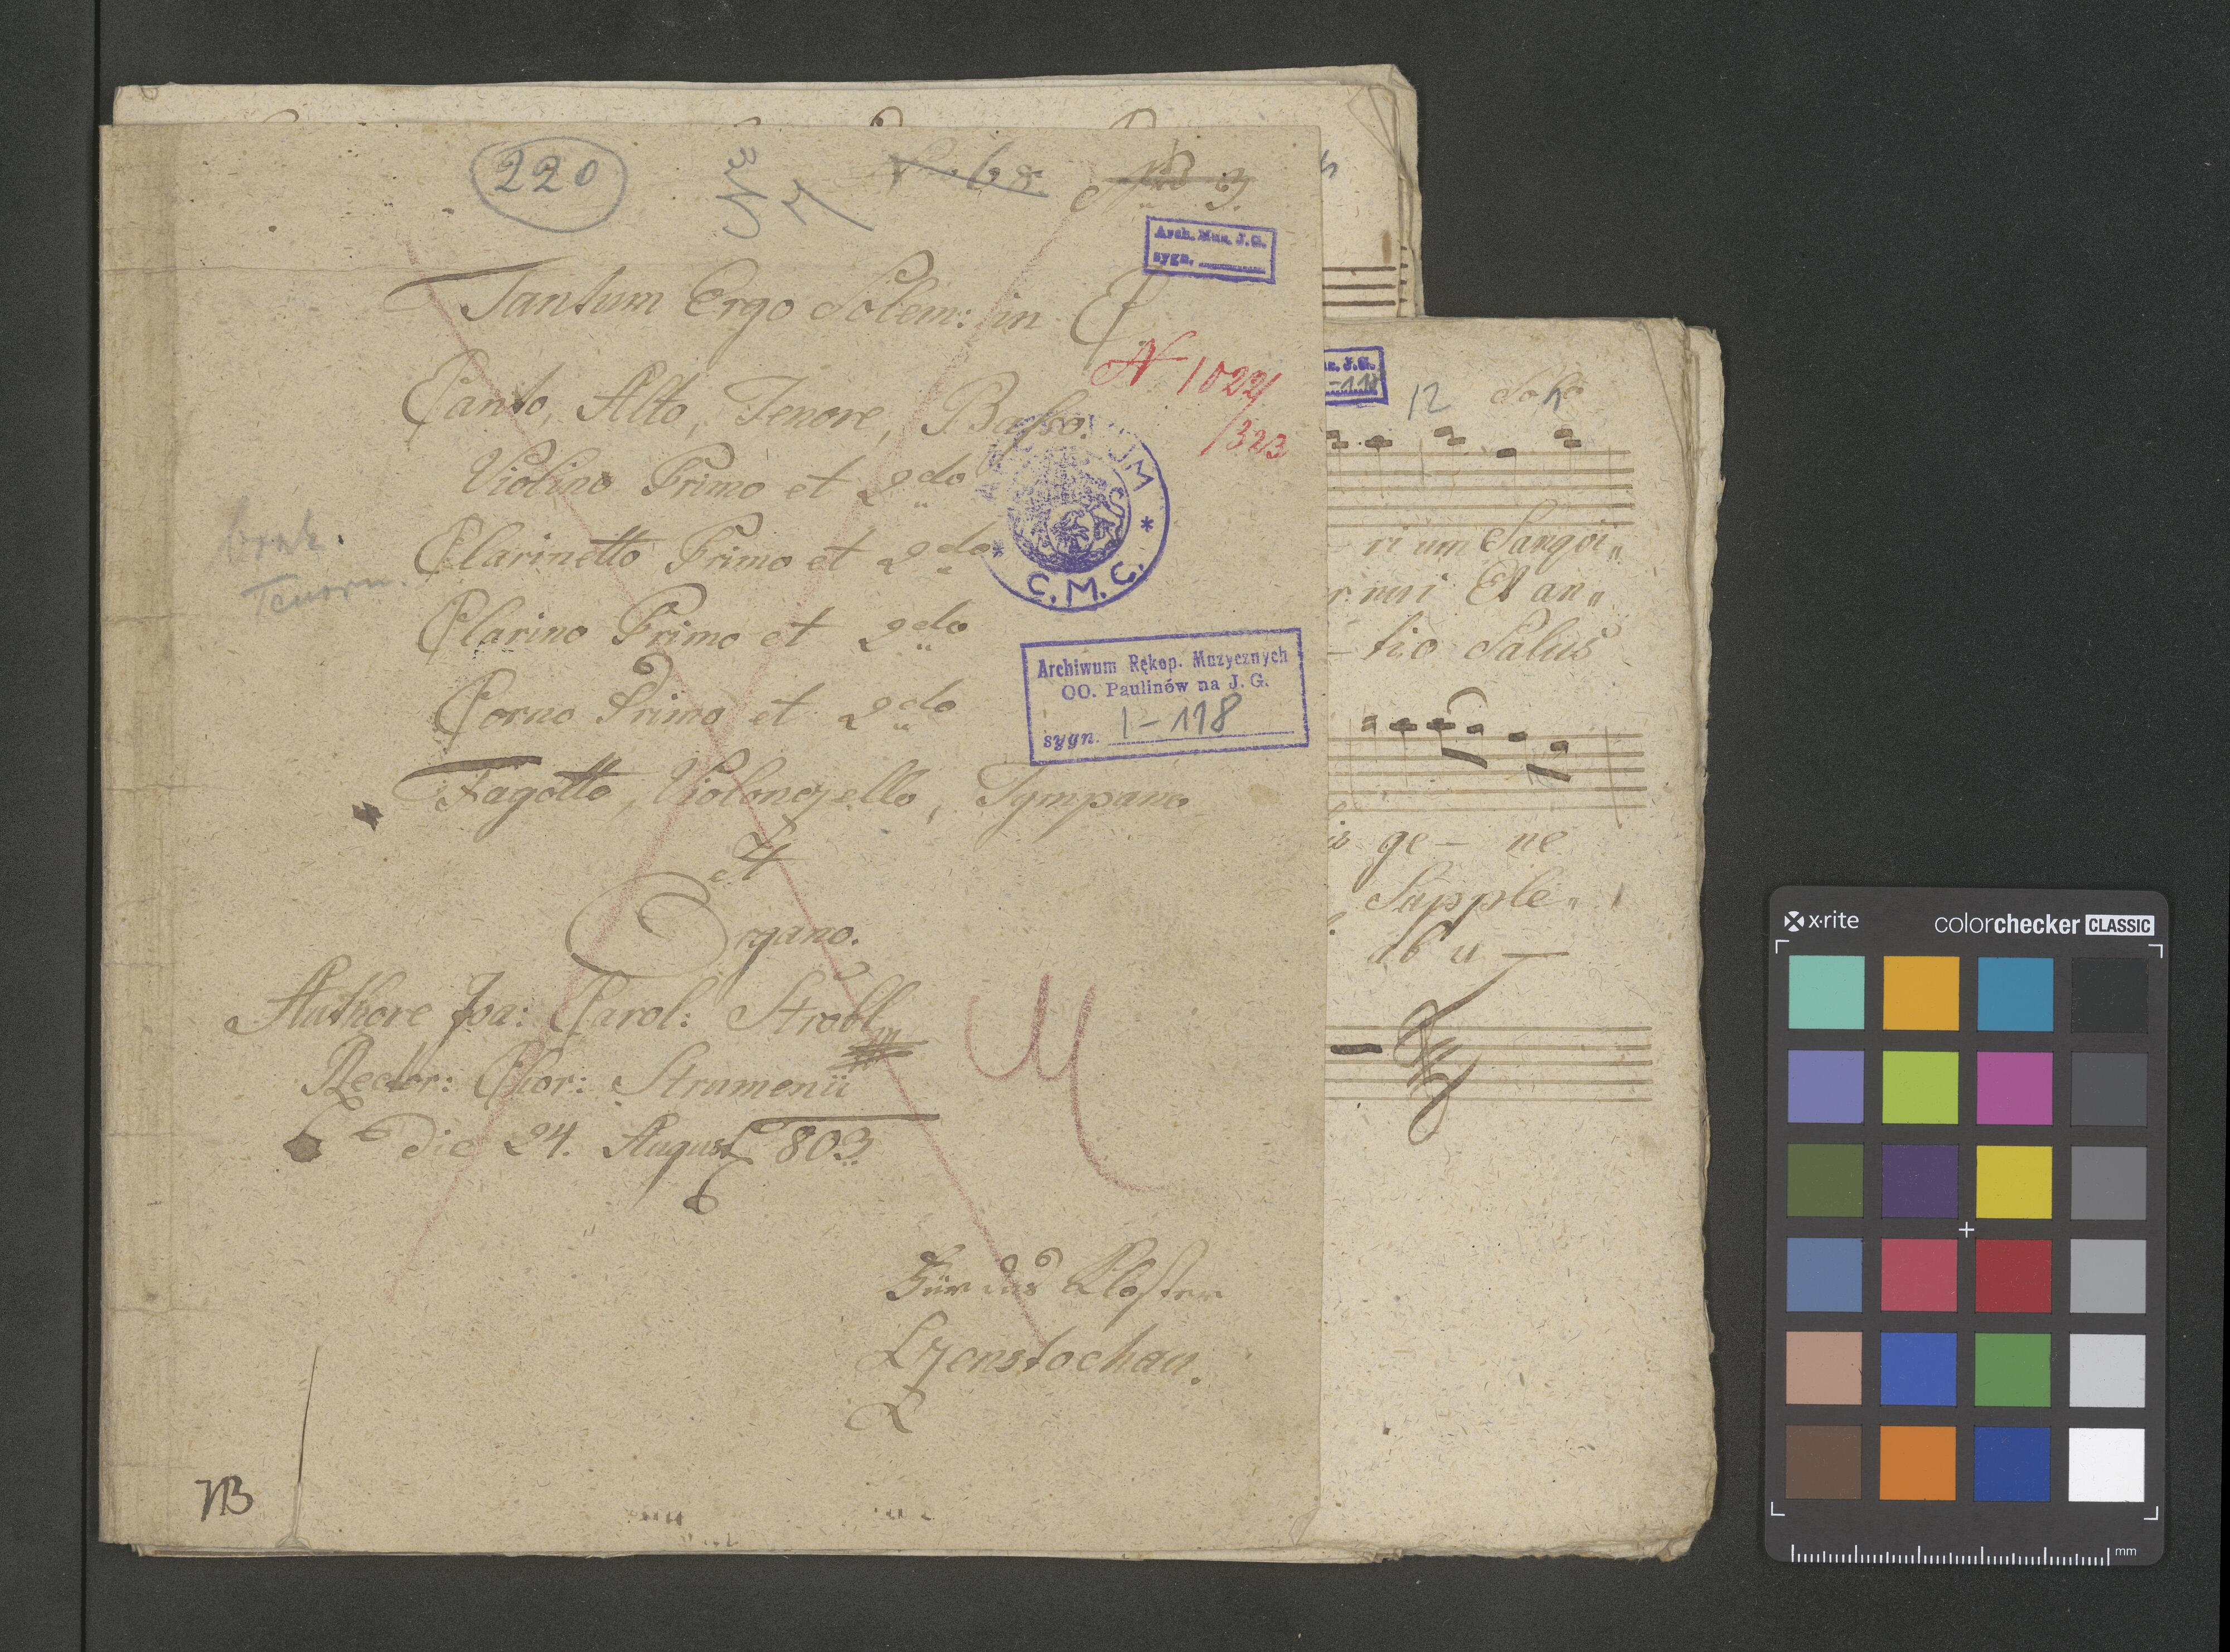 220
No 3.
Arch. Muz. J.G.
sygn.
Tantum Ergo Solem: in C
N 1022/
/323
Canto, Alto, Tenore, Basso.
Violino Primo et 2do
Clarinetto Primo et 2do
Clarino Primo et 2do
Corno Primo et 2do
Fagotto, Violoncello, Tympano
et
Organo.
brak
Tenoru.
C.M.C.
Archiwum Rękop. Muzycznych
OO. Paulinów na J. G.
sygn. I-118
Authore Joa: Carol: Strobl
Rector: Chor: Stramenii
Die 24. August 803
Für das Kloster
Czenstochau.
NB
12 Solo
ri um Sangvi
nui Et an
tio Salus
ge - ne
Supple
ab u
x-rite
colorchecker CLASSIC
mm